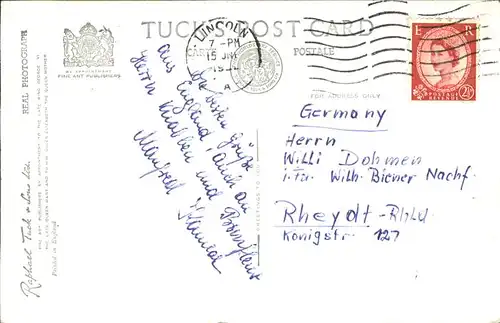 TUCK'S POST CARD
CARTE POSTALE
LINCOLN
7-PM
15 JNE
19
A
E R
POSTAGE REVENUE
2½
BY APPOINTMENT
FINE ART PUBLISHERS
REAL PHOTOGRAPH
Raphael Tuck & Sons Ltd.
Printed in England
FOR ADDRESS ONLY
Die besten Grüße
aus England, auch an
Herrn Knabben und
Manfred
Germany
Herrn
Willi Dohmen
i.Fa. Wilh. Biener Nachf.
Rheydt-Rhld
Königstr. 127